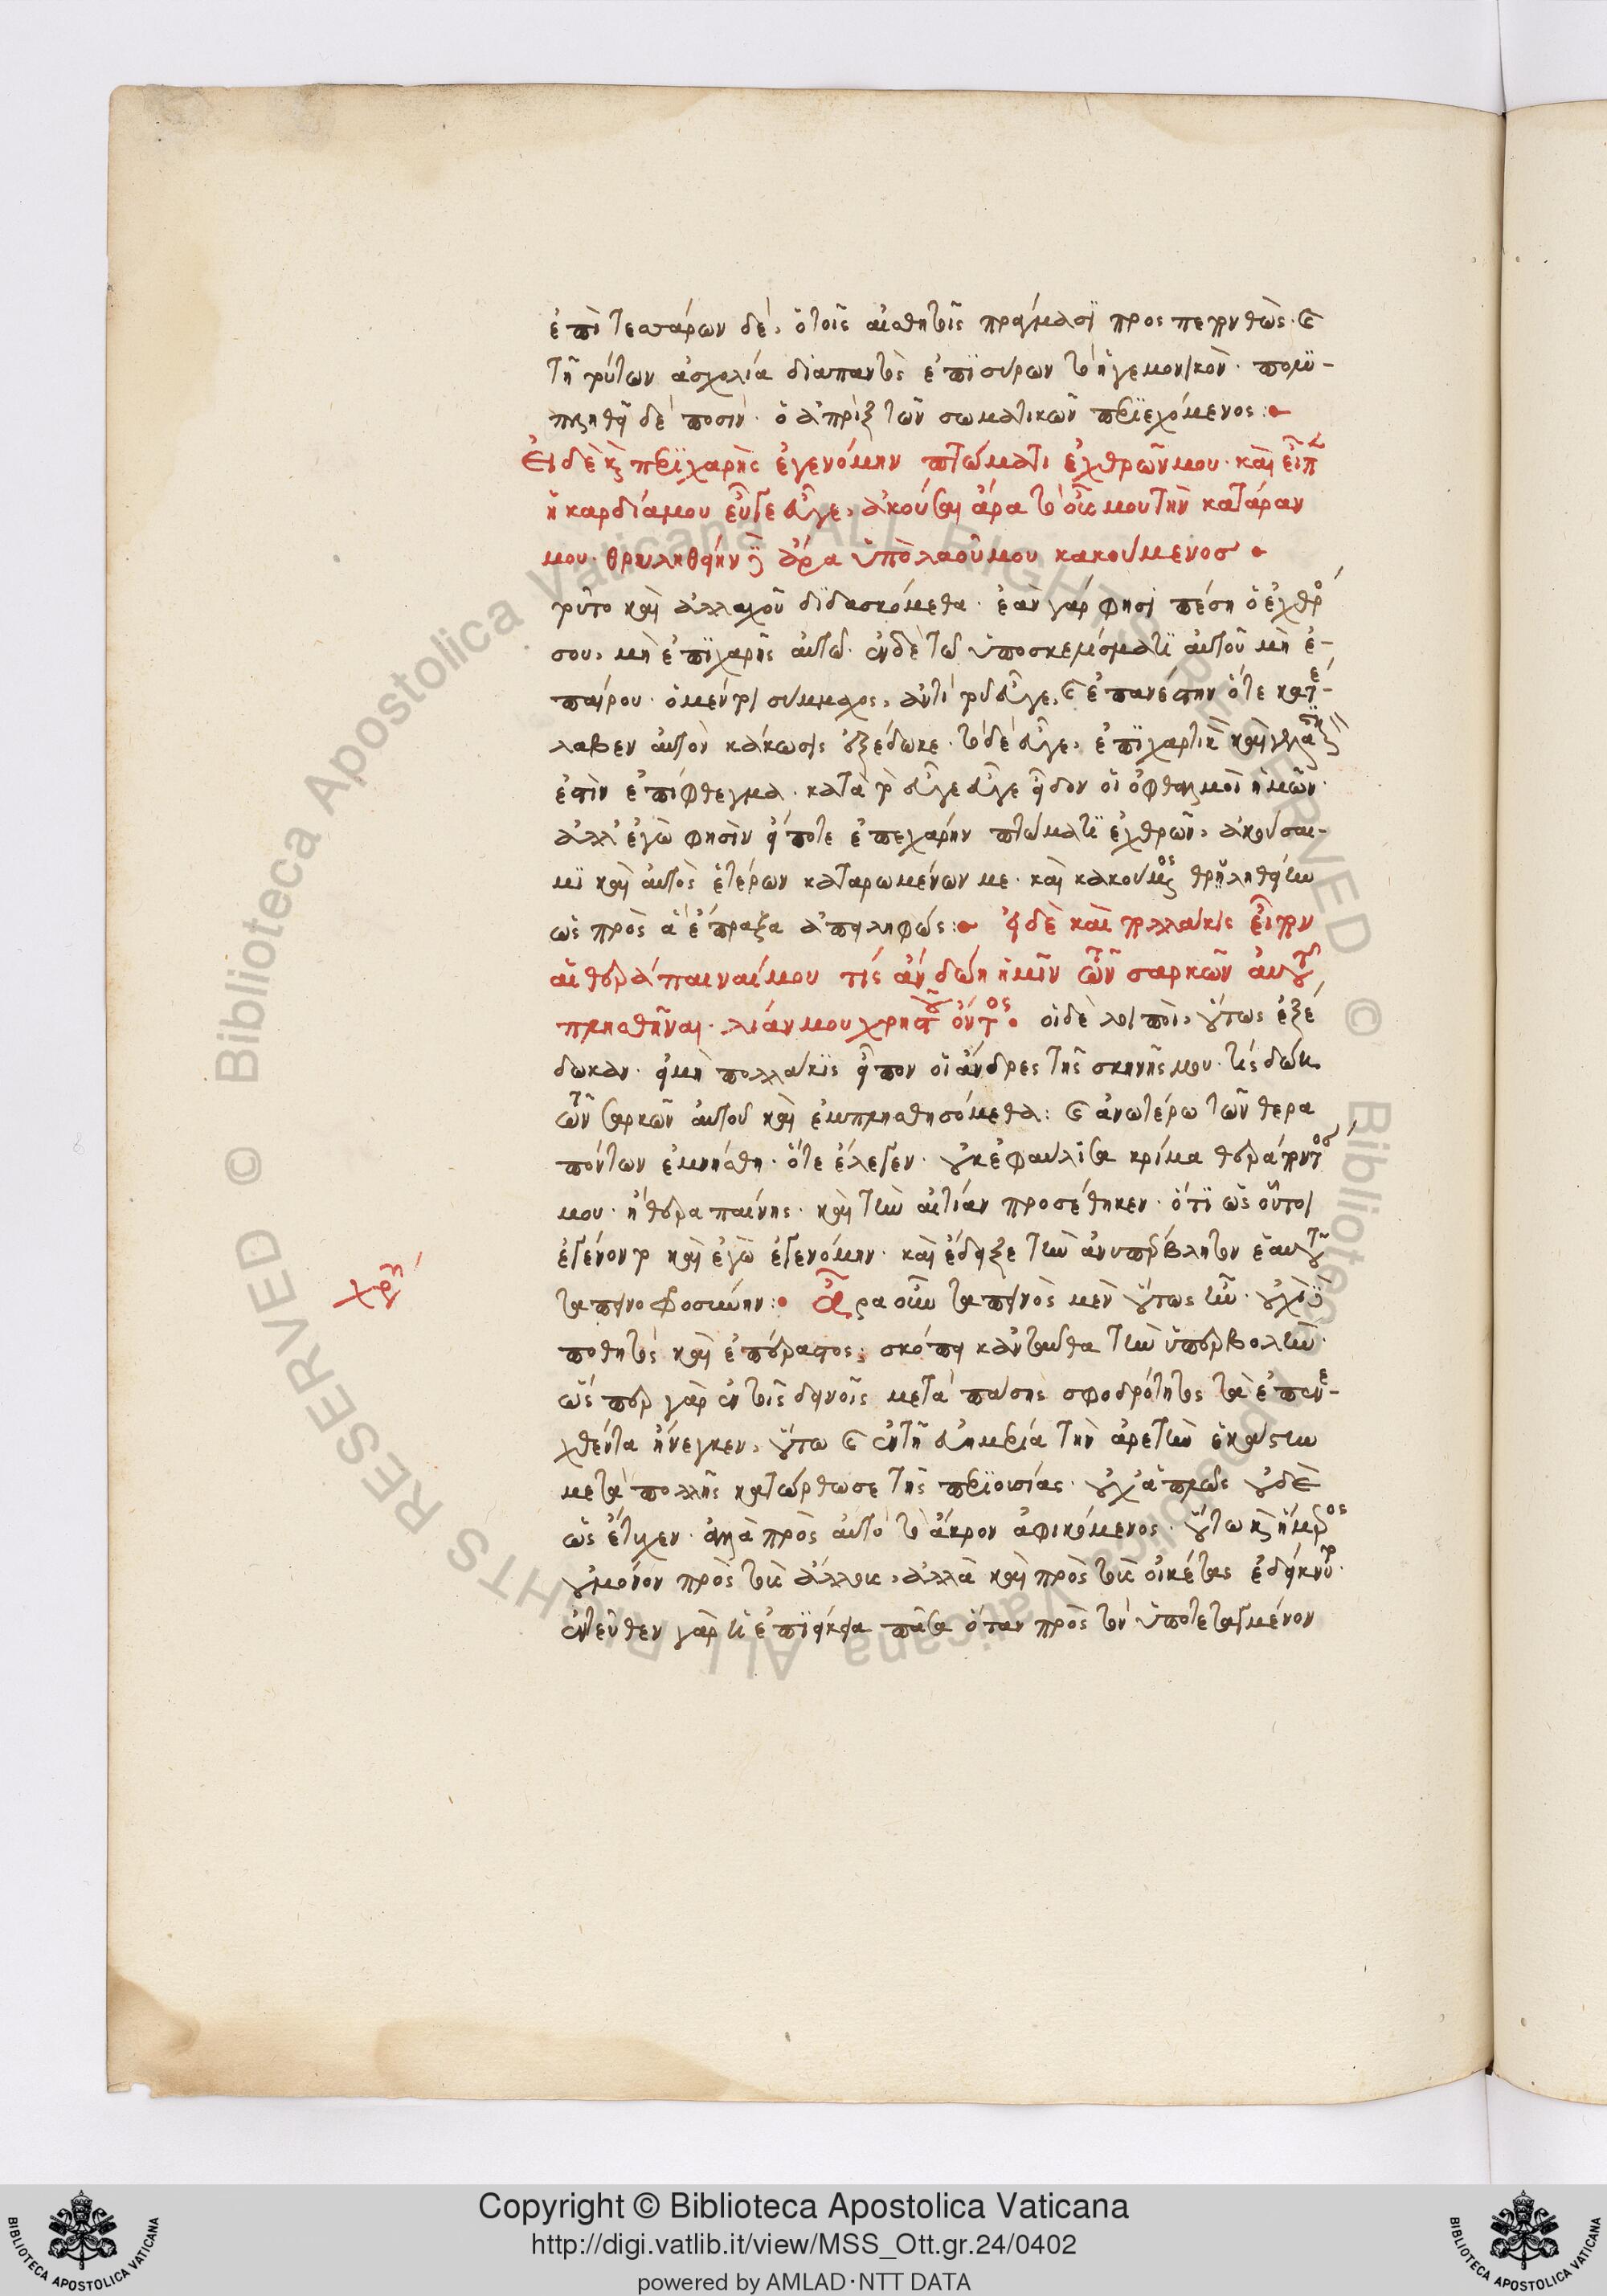 ἐπὶ τεσσάρων δὲ, ὁ τοῖς αἰσθητοῖς πράγμασι προσπεπονθὼς· καὶ
τῇ τούτων ἀσχολίᾳ διαπαντὸς ἐπισύρων τὸ ἡγεμονικὸν·
δὲ ποσὶν· ὁ ἀπρὶξ τῶν σωματικῶν περιεχόμενος:
Εἰ δὲ καὶ ἐπιχαρὴς ἐγενόμην πτώματι ἐχθρῶν μου· καὶ εἶπεν
ἡ καρδία μου εὖγε εὖγε, ἀκοῦσαι ἄρα τὸ οὖς μου τὴν κατάραν
μου· θρυληθείην δὲ ἄρα ὑπὸ λαοῦ μου κακούμενος
τοῦτο καὶ ἀλλαχοῦ διδασκόμεθα· ἐὰν γάρ φησι πέσῃ ὁ ἐχθρός
σου, μὴ ἐπιχαρῇς αὐτῷ· ἐν δὲ τῷ ὑποσκελίσματι αὐτοῦ μὴ ἐ-
παίρου· ὁ μέντοι σύμμαχος, ἀντὶ τοῦ εὖγε, καὶ ἐπανέστην ὅτε κατέ-
λαβεν αὐτὸν κάκωσις ἐξέδωκε· τὸ δὲ εὖγε, ἐπιχαρτικὸν καὶ γελαστικόν
ἐστιν ἐπίφθεγμα· κατὰ τὸ εὖγε εὖγε εἶδον οἱ ὀφθαλμοὶ ἡμῶν·
ἀλλ' ἐγὼ φησὶν εἴ ποτε ἐπεχάρην πτώματι ἐχθρῶν, ἀκούσαι-
μι καὶ αὐτὸς ἑτέρων καταρωμένων με· καὶ κακούμενος θρυληθείην
ὡς πρὸς ἃ ἔπραξα ἀπειληφώς: εἰ δὲ καὶ πολλάκις εἶπον
αἱ θεράπαιναί μου τίς ἂν δῴη ἡμῖν τῶν σαρκῶν αὐτοῦ
πλησθῆναι· λίαν μου χρηστοῦ ὄντος· οἱ δὲ λοιποὶ, οὕτως ἐξέ
δωκαν· εἰ μὴ πολλάκις εἶπον οἱ ἄνδρες τῆς σκηνῆς μου· τίς δώη
τῶν σαρκῶν αὐτοῦ καὶ ἐμπλησθησόμεθα: καὶ ἀνωτέρω τῶν θερα
πόντων ἐμνήσθη· ὅτε ἔλεγεν· οὐκ ἐφαύλισα κρίμα θεράποντός
μου· ἢ θεραπαίνης· καὶ τὴν αἰτίαν προσέθηκεν· ὅτι ὡς οὗτοι
ἐγένοντο καὶ ἐγὼ ἐγενόμην· καὶ ἔδειξε τὴν ἀνυπέρβλητον ἑαυτοῦ
ταπεινοφροσύνην: Ἆρα οὖν ταπεινὸς μὲν οὕτως ἦν· οὐχὶ δὲ
ποθητὸς καὶ ἐπέραστος; σκόπει κἀνταῦθα τὴν ὑπερβολὴν·
ὥσπερ γὰρ ἐν τοῖς δεινοῖς μετὰ πάσης σφοδρότητος τὰ ἐπενε-
χθέντα ἤνεγκεν, οὕτω καὶ ἐν τῇ εὐημερίᾳ τὴν ἀρετὴν ἑκάστην
μετὰ πολλῆς κατώρθωσε τῆς περιουσίας· οὐχ ἁπλῶς οὐδὲ
ὡς ἔτυχεν· ἀλλὰ πρὸς αὐτὸ τὸ ἄκρον ἀφικόμενος· οὕτω καὶ ἥμερος
οὐ μόνον πρὸς τοὺς ἄλλους, ἀλλὰ καὶ πρὸς τοὺς οἰκέτας ἐδείκνυτο·
ἐντεῦθεν γὰρ ἡ ἐπιείκεια πᾶσα ὅταν πρὸς τὸν ὑποτεταγμένον
Copyright © Biblioteca Apostolica Vaticana
http://digi.vatlib.it/view/MSS_Ott.gr.24/0402
powered by AMLAD·NTT DATA